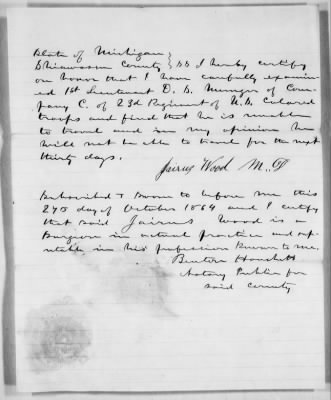 State of Michigan }
Shiawassee County } SS I hereby certify
on honor that I have carfully examin
ed 1st Lieutenant D. D. Munger of Com-
pany C. of 23d Regiment of U.S. Colored
troops and find that he is unable
to travel and in my opinion he
will not be able to travel for the next
thirty days.
Jairus Wood M. D
Subscribed & Sworn to before me this
27th day of October 1864 and I certify
that said Jairus Wood is a
Surgeon in actual practice and rep-
utable in his profession known to me,
Benton Hanchett
Notary Public for
said County